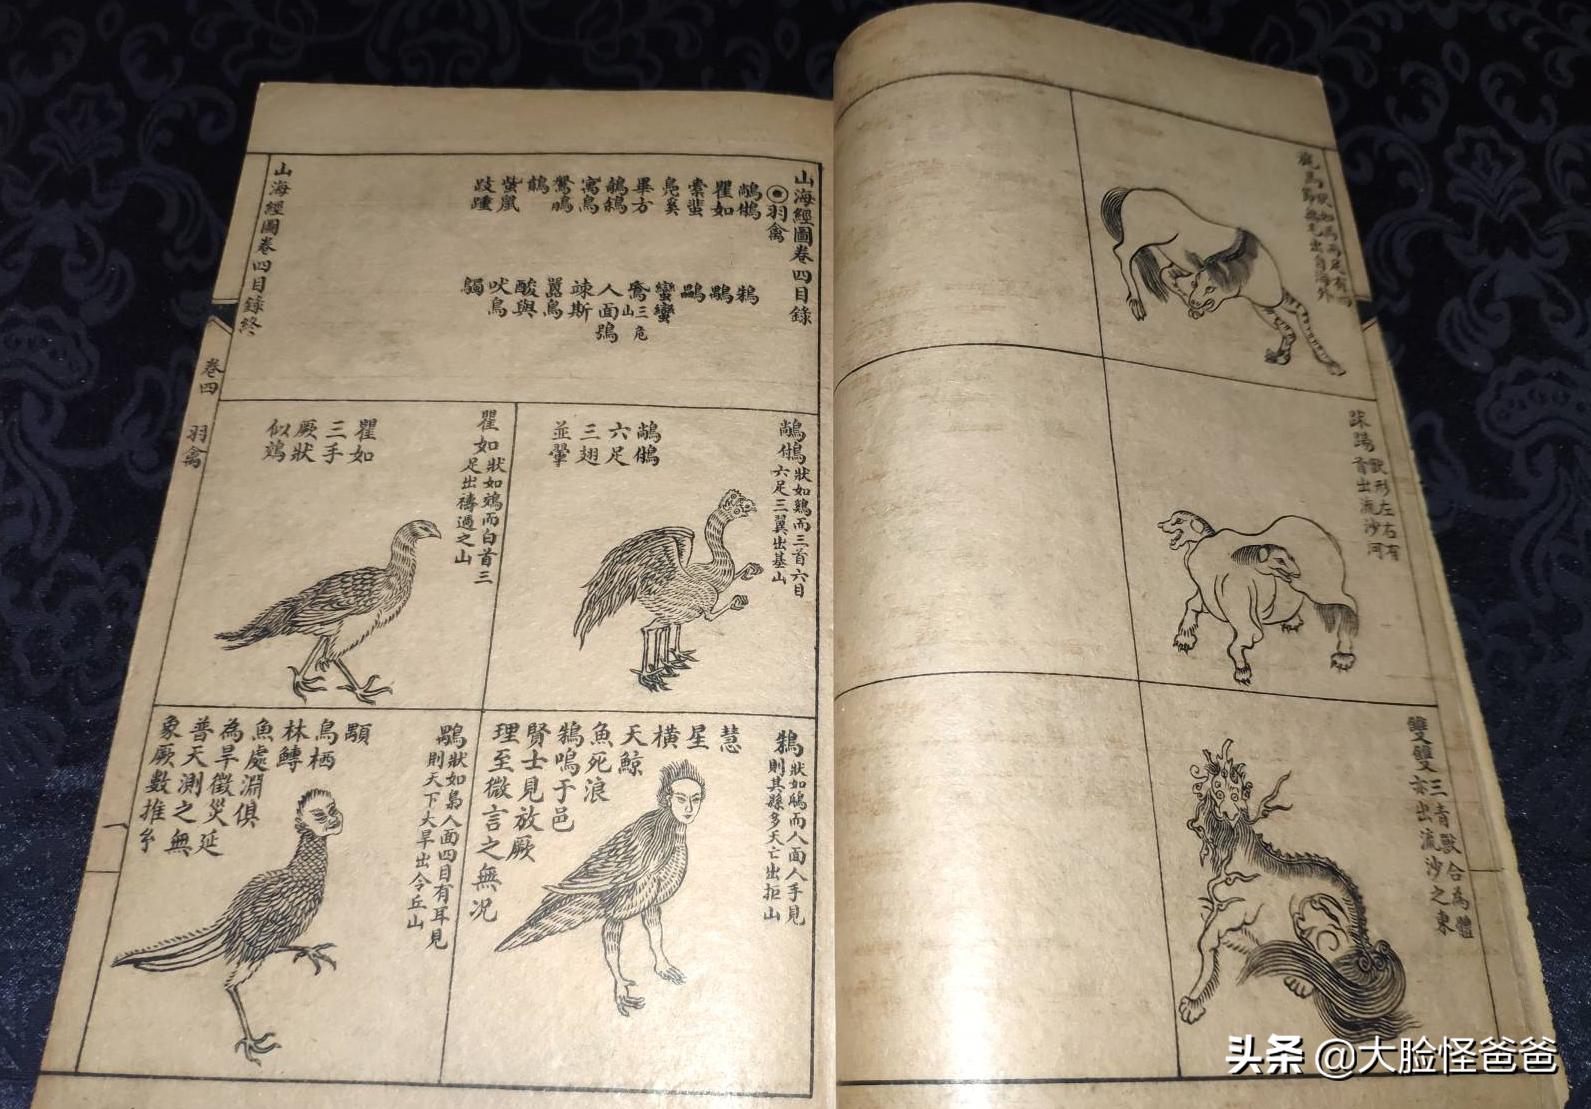 䮝馬
足有四節出自海外
䟣踢
獸形左右有
首出流沙河
雙雙
三青獸合為體
亦出流沙之東
山海經圖卷四目錄
羽禽
鵸
瞿如
橐𩇯
鳧徯
畢方
鵸鵌
寓鳥
鴛鵰
鶺
蜚鼠
跂踵
鴸
顒
蠻蠻
三危
人面鴞
竦斯
囂鳥
酸與
吠鳥
山海經圖卷四目錄終
卷四
羽禽
狀如鷄而三首六目
六足三翼出基山
六足
三翅
並翬
瞿如
狀如鵁而白首三
足出禱過之山
瞿如
三手
厥狀
似鵁
鴸
狀如鴟而人面人手見
則其縣多夭亡出拒山
慧
星
橫
天鯨
魚死浪
鴸鳴于邑
賢士見放厥
理至微言之無况
狀如梟人面四目有耳見
則天下大旱出令丘山
顒
鳥栖
林鱄
魚處淵俱
為旱徵災延
普天測之無
象厥數推
头条 @大脸怪爸爸